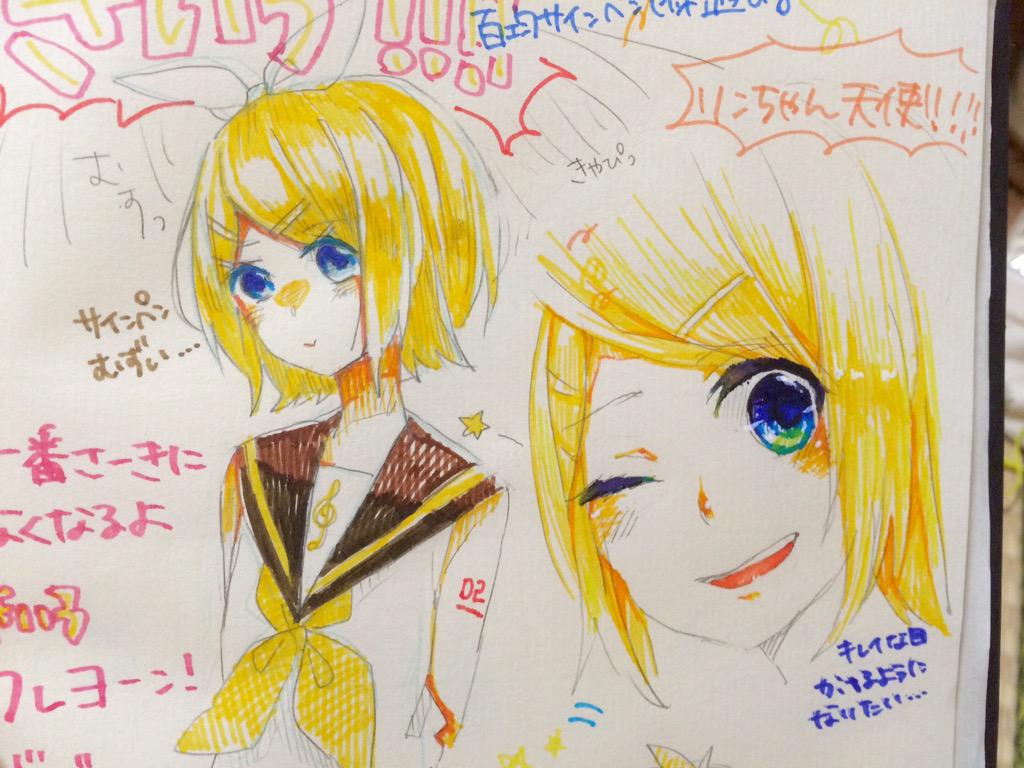 きいろ!!!
百均サインペン
リンちゃん天使!!!!!
むすっ
きゃぴっ
サインペン
むずい...
一番さーきに
なくなるよ
きいろ
クレヨーン!
02
キレイな目
かけるように
なりたい...